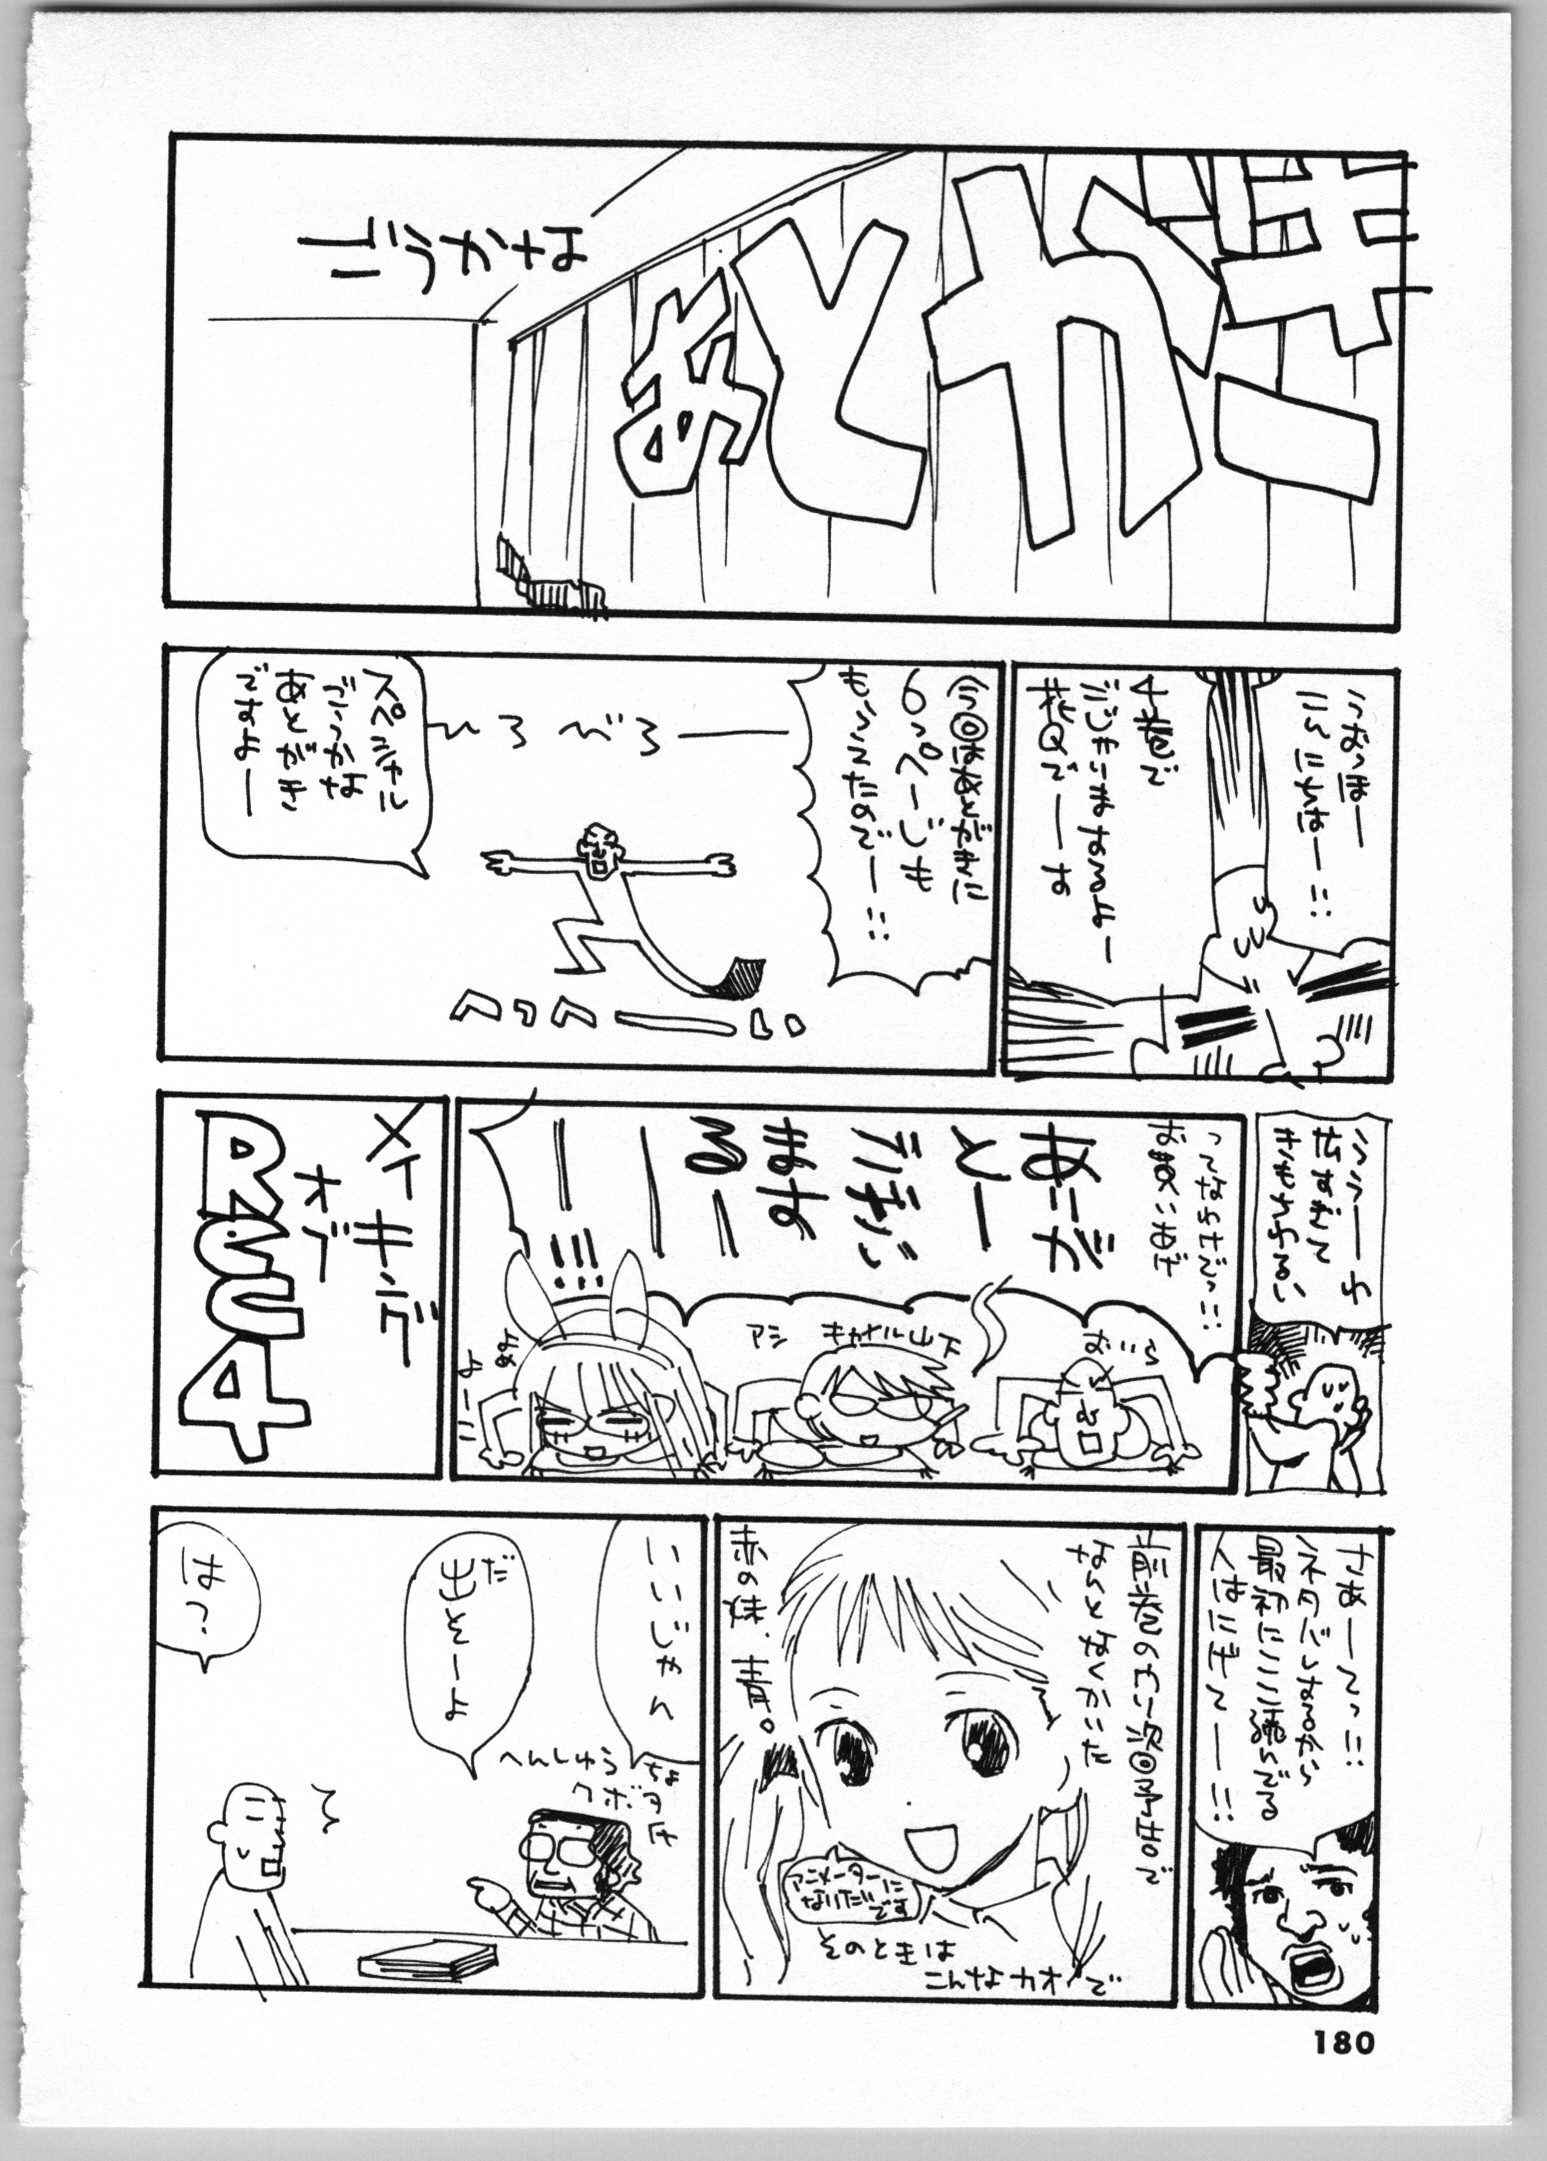 ごうかな
あとがきー
うおっほー
こんにちはー!!
4巻で
だじょーぶなのよー
花Qでーす
今回はあとがきに
6っぺーじも
もらったのでー!!
ひろびろーー
スペシャル
ごうかな
あとがき
ですよー
へっへーい
ううーわ
広すぎて
きもちわるい
ってなわけでっ!!
おめえいあざ
あーが
とー
ござい
ます
るー
ーー!!!
おいら
アシ キャナル山下
よめ
よーこ
メイキング
オブ
RGG4
さあーてっ!!
ネタバレするから
最初にここ読んでる
人はにげてー!!
前巻のウソ次回予告で
なんとなくかいた
赤の妹、青。
アニメーターに
なりたいです
そのときは
こんなカオで
いいじゃん
だ
出そーよ
へんしゅうちょ
クボタ氏
は?
180